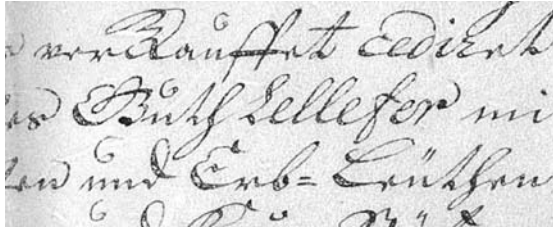 verkauffet cediret
Guth Lellefer mi
und Erb= Leüthen